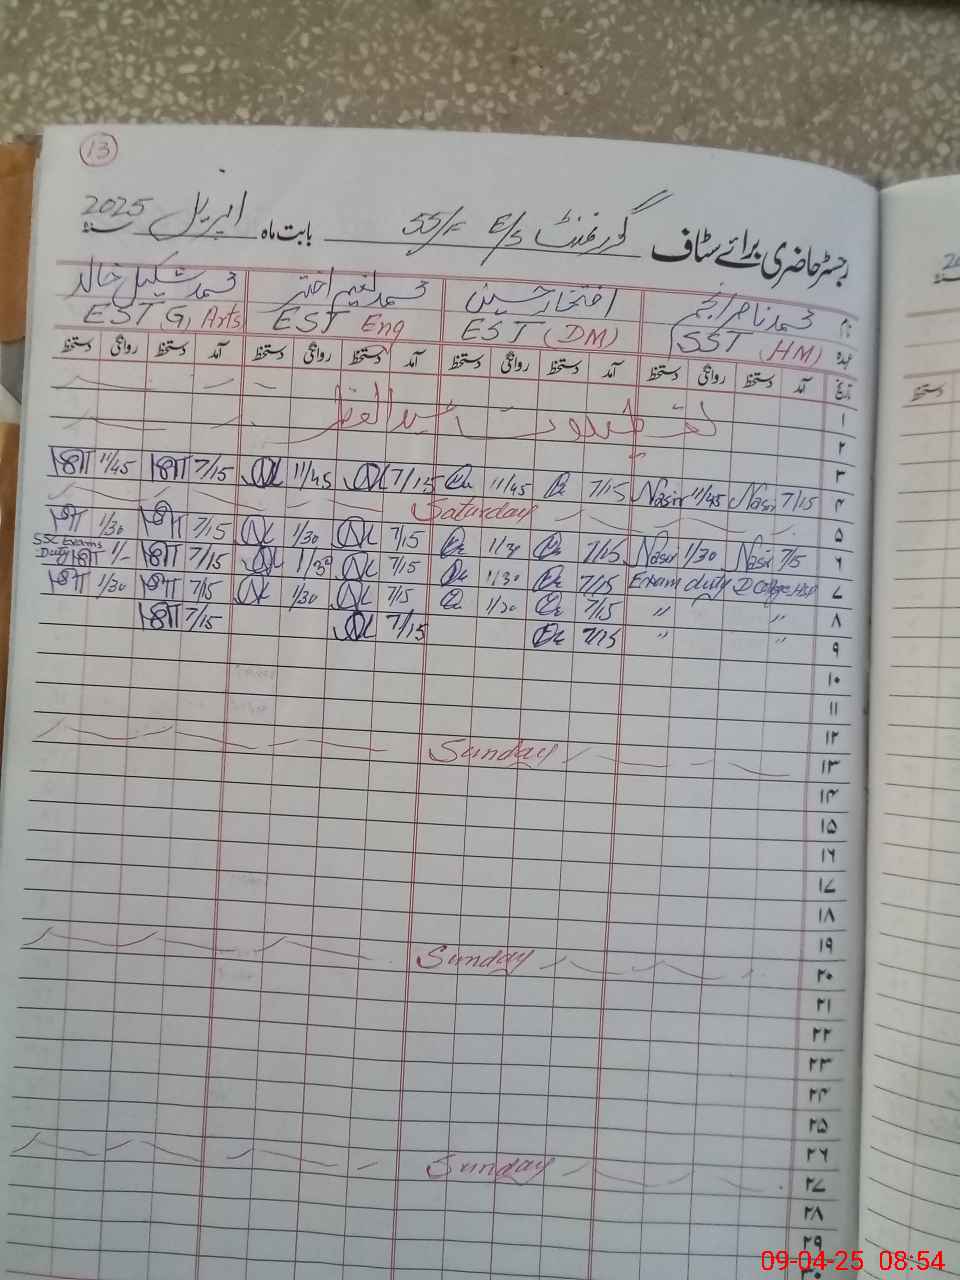 13
رجسٹر حاضری برائے سٹاف گورنمنٹ E/S 55/F بابت ماہ اپریل سنہ 2025
نام محمد ناصر انجم افتخار حسین محمد نعیم اختر محمد شکیل خالد
عہدہ SST (HM) EST (DM) EST Eng EST G, Arts
تاریخ آمد دستخط روانگی دستخط آمد دستخط روانگی دستخط آمد دستخط روانگی دستخط آمد دستخط روانگی دستخط
۱
۲ عید الفطر
۳
۴ 7/15 Nasir 11/45 Nasir 7/15 11/45 7/15 11/45 7/15 11/45
۵ Saturday
۶ 7/5 Nasir 1/30 Nasir 7/15 1/30 7/15 1/30 7/15 1/30
۷ Exam duty 7/15 1/30 7/15 1/30 7/15 1/- SSC Exams Duty
۸ " " 7/15 1/30 7/15 1/30 7/15 1/30
۹ " " 7/15 7/15 7/15
۱۰
۱۱
۱۲
۱۳ Sunday
۱۴
۱۵
۱۶
۱۷
۱۸
۱۹
۲۰ Sunday
۲۱
۲۲
۲۳
۲۴
۲۵
۲۶
۲۷ Sunday
۲۸
۲۹
۳۰
دستخط
09-04-25 08:54